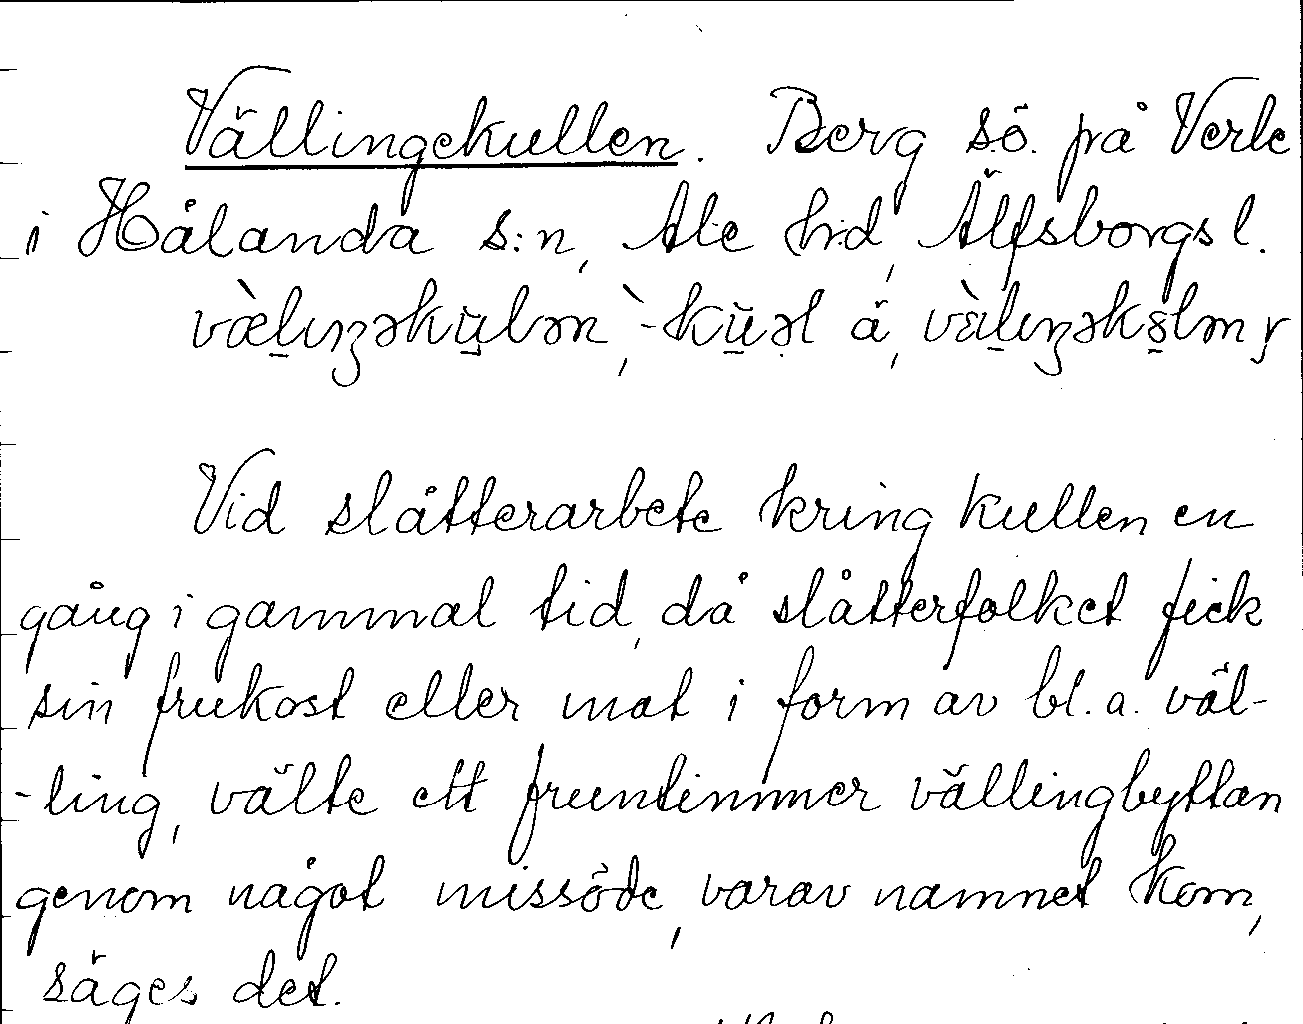 Vällingekullen. Berg sö. på Verle
i Hålanda s:n, Ale hrd, Älfsborgs l.
Vid slåtterarbete kring kullen en
gång i gammal tid, då slåtterfolket fick
sin frukost eller mat i form av bl.a. väl-
-ling, välte ett fruntimmer vällingbyttan
genom något missöde, varav namnet kom,
säges det.